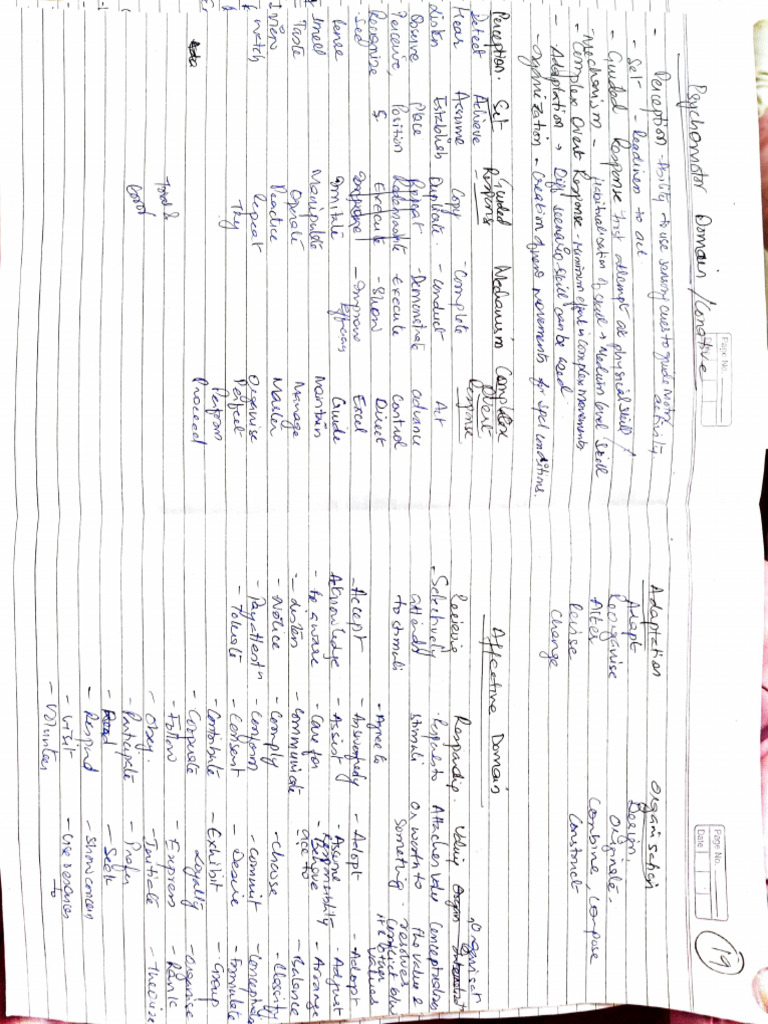 Page No.
Psychomotor Domain / Conative
- Perception - Ability to use sensory cues to guide motor activity.
- Set - Readiness to act
- Guided Response - first attempt at physical skill /
- Mechanism - Habitualisation of skill → Medium level skill
- Complex Overt Response - Minimum effort in complex movements
- Adaptation → Diff scenario skill can be used.
- Organization - creation of new movements for spel conditions.
Perception. Set Guided Response Mechanism Complex Overt Response
Detect Achieve - Copy - Complete Act
Hear Assume Duplicate. - conduct advance
Listen Establish Repeat - Demonstrate Control
Observe Place execute Direct
Perceive, Position Execute - Show Excel
Recognise S. Imitate - Improve Efficiency Guide
See Manipulate Maintain
Sense Operate Manage
Smell Practice Master
Taste Repeat Organise
View Try Perfect
watch Perform
Proceed
Adaptation Organisation
Adapt Design
Reorganise Originate.
Alter Combine, Compose
Revise Construct
Change
Page No.
Date
19
Affective Domain
Recieving Responding. Organizatn
- Selectively attends to stimuli
- Responds to stimuli
Attaches value Or worth to Something.
Conceptualizes the value & resolves conflict b/w
- Agree to
- Accept - Adopt - Adapt
Acknowledge - Assist - Assume Responsibility - Adjust
- be aware - Care for - Behave acc to - Arrange
- listen - communicate - Balance
- Notice - Comply - choose - Classify
- Pay attentn - conform - commit
- Tolerate - Consent - Desire - Formulate
- Contribute - Exhibit - Group
- Cooperate Loyalty - Organise
- Follow - Express - Rank
- Obey. - Initiate - Theorize
- Participate - Prefer
- Read - Seek
- Respond - Show concern
- Visit - Use resources to
- Volunteer